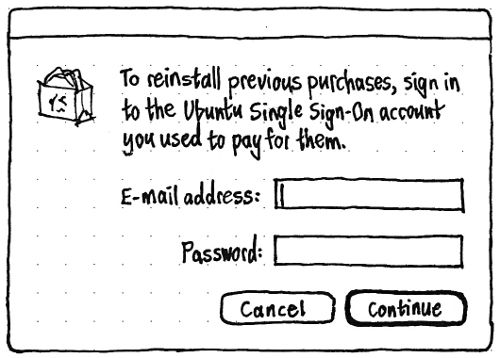 To reinstall previous purchases, sign in
to the Ubuntu Single Sign-On account
you used to pay for them.
E-mail address:
Password:
Cancel Continue